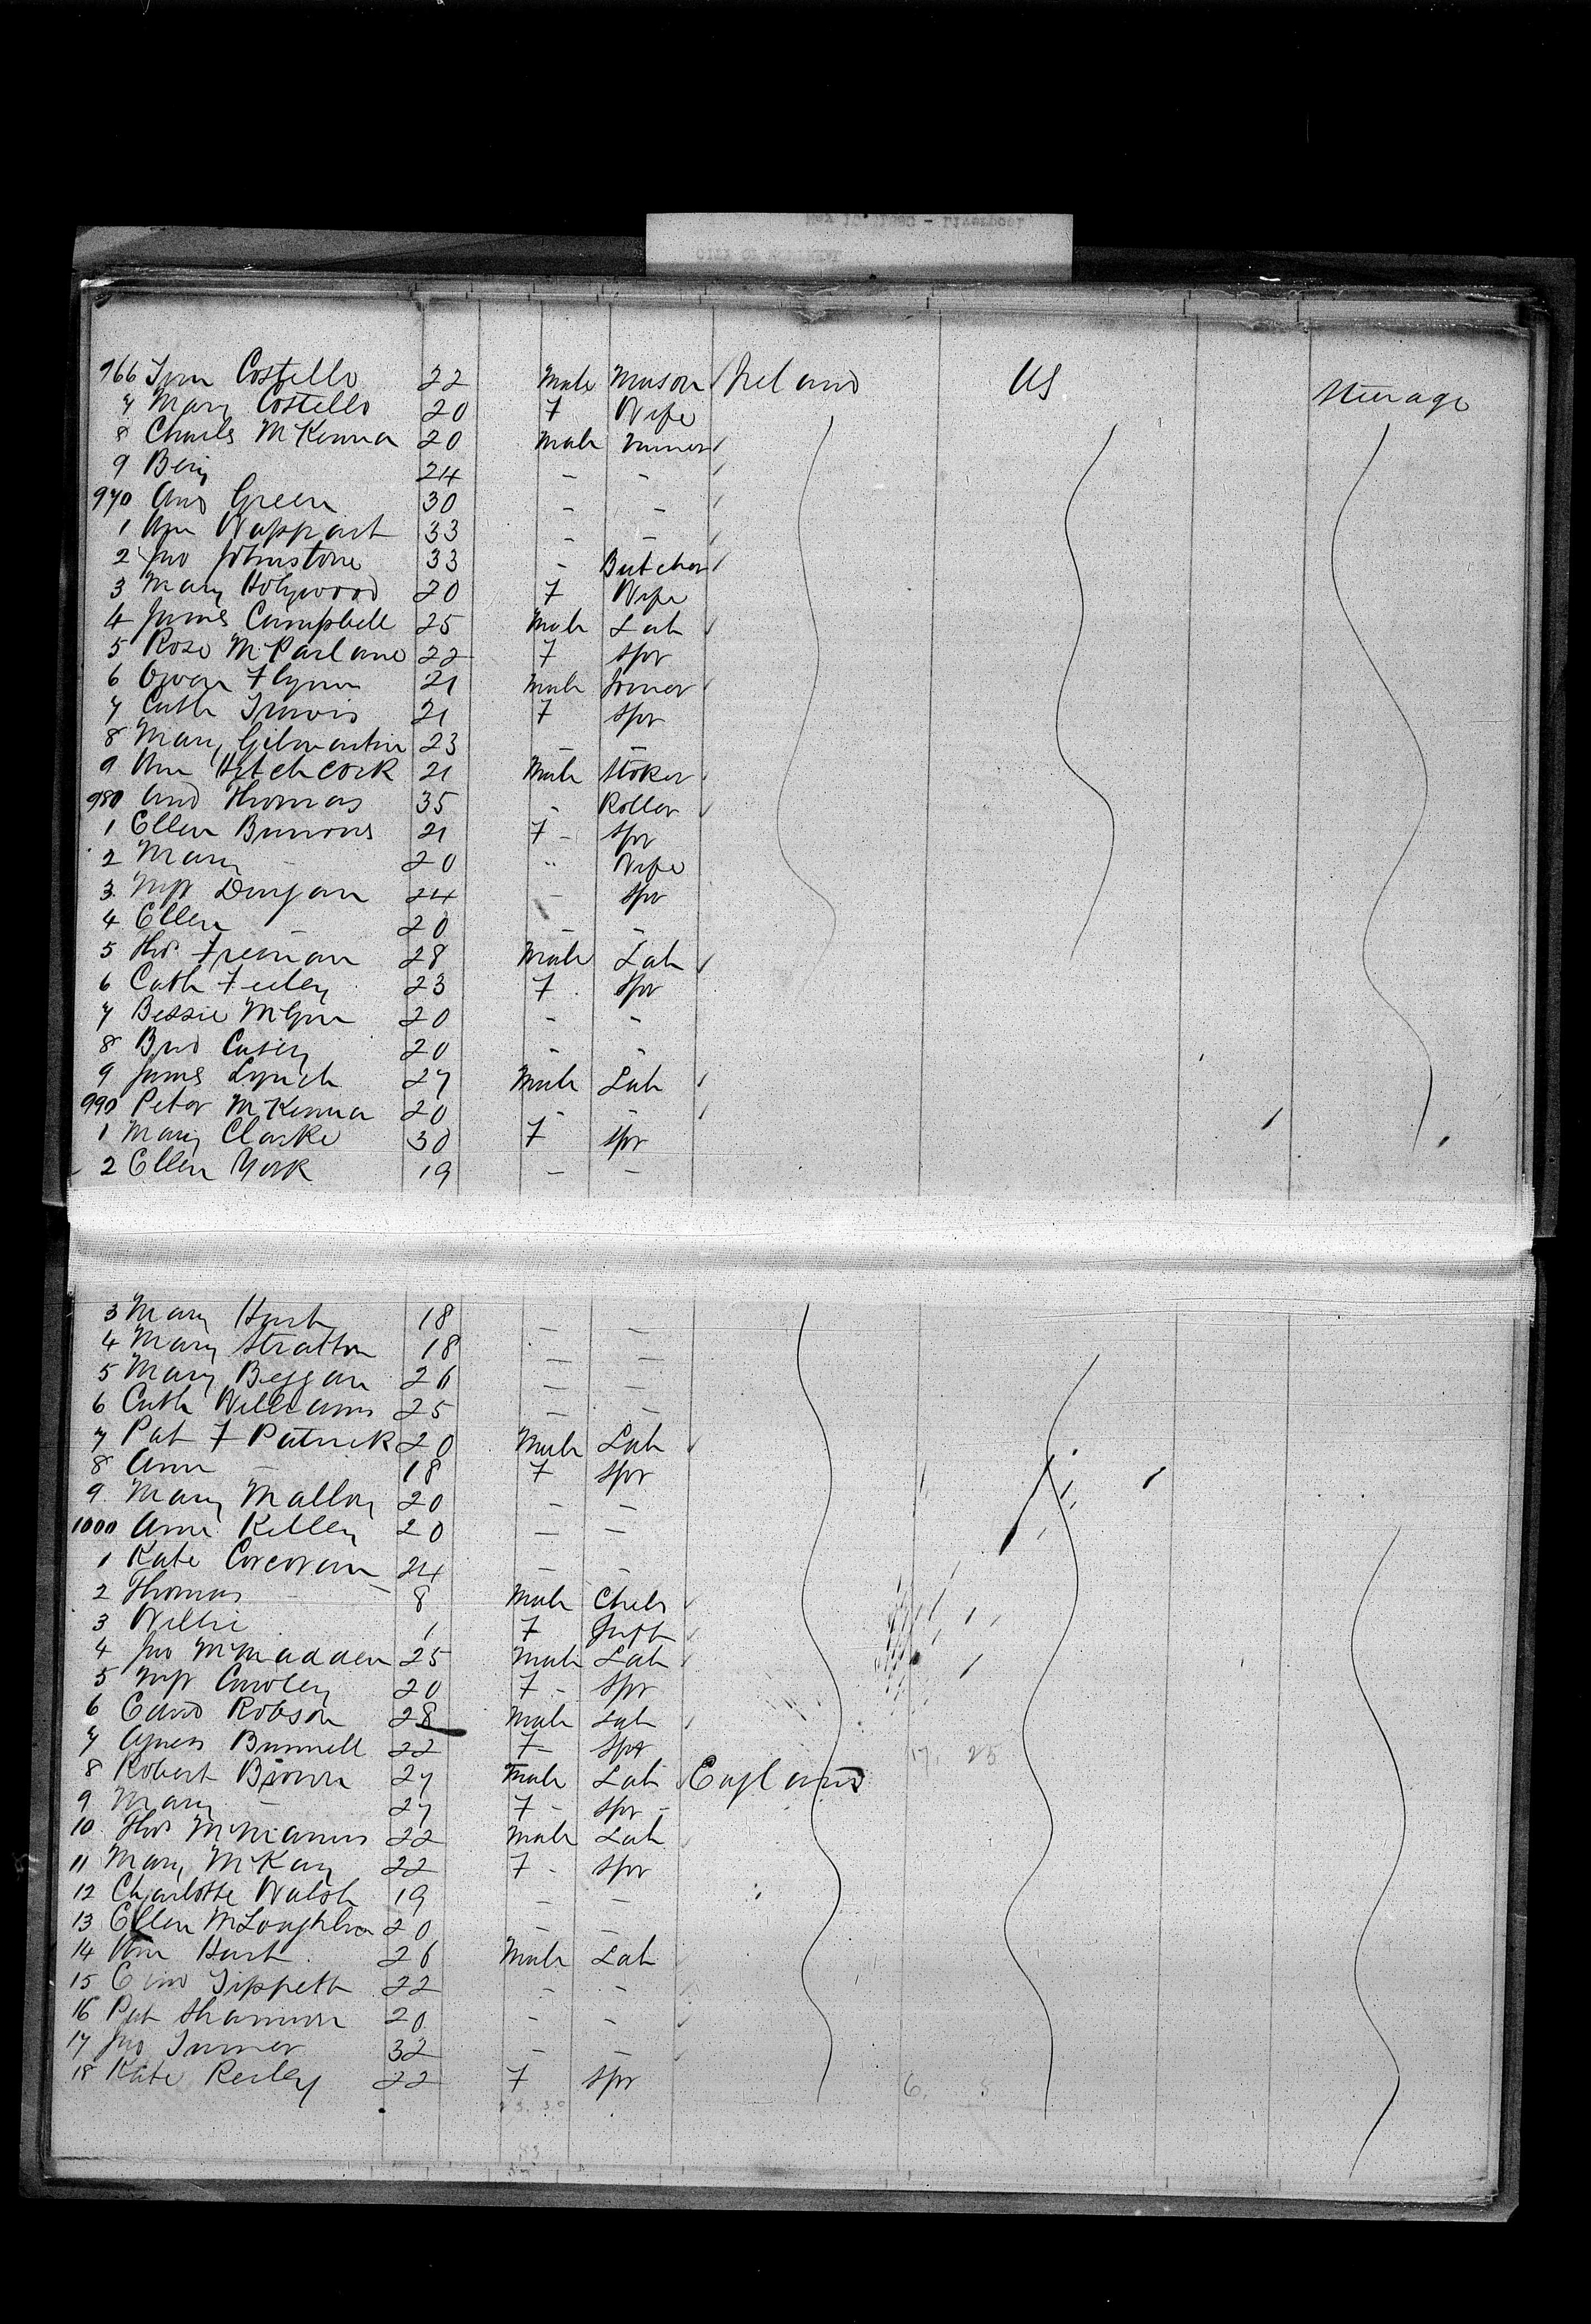 966 Tom Costello 22 Male Mason Ireland US Steerage
7 Mary Costello 20 F Wife
8 Charles McKenna 20 Male Miner
9 Benj 24 - -
970 And Green 30 - -
1 Wm 33 - -
2 Jno Johnstone 33 - Butcher
3 Mary Holywood 20 F Wife
4 James Campbell 25 Male Lab
5 Rose McParlane 22 F Spr
6 Owen Flynn 21 Male Joiner
7 Cath Travis 21 F Spr
8 Mary Gilmartin 23 - -
9 Wm Hitchcock 21 Male Stoker
980 And Thomas 35 - Roller
1 Ellen Burrows 21 F - Spr
2 Mary - 20 " Wife
3 Mgt Dungan 24 - Spr
4 Ellen - 20 - -
5 Thos Freeman 28 Male Lab
6 Cath Feeley 23 F Spr
7 Bessie McGurr 20 - -
8 Brid Casey 20 - -
9 James Lynch 27 Male Lab
990 Peter McKenna 20 - -
1 Mary Clarke 30 F Spr
2 Ellen York 19 - -
3 Mary Hart 18 - -
4 Mary Stratton 18 - -
5 Mary Beggan 26 - -
6 Cath Williams 25 - -
7 Pat F Patrick 20 Male Lab
8 Ann - 18 F Spr
9 Mary Malloy 20 - -
1000 Ann Kelley 20 - -
1 Kate Corcoran 24 - -
2 Thomas - 8 Male Child
3 Willie 1 F Inft
4 Jno McMadden 25 Male Lab
5 Mgt Cawley 20 F - Spr
6 Edwd Robson 28 Male Lab
7 Agness Bunnell 22 F - Spr
8 Robert Brown 27 Male Lab England
9 Mary - 27 F - Spr -
10 Thos McManus 22 Male Lab
11 Mary McKay 22 F - Spr
12 Charlotte Walsh 19 - -
13 Ellen McLoughlin 20 - -
14 Wm Hart 26 Male Lab
15 Tippett 22 - -
16 Pat Shannon 20 - -
17 Jno Turner 32 - -
18 Kate Reiley 22 F Spr